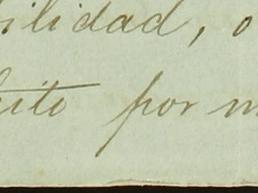 ilidad, o
ito por m